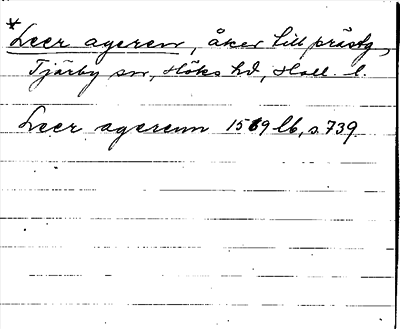 *
Leer ageren, åker till prästg,
Tjärby sn, Höks hd, Hall. l.
Leer agerenn 1569 lb, s. 739.